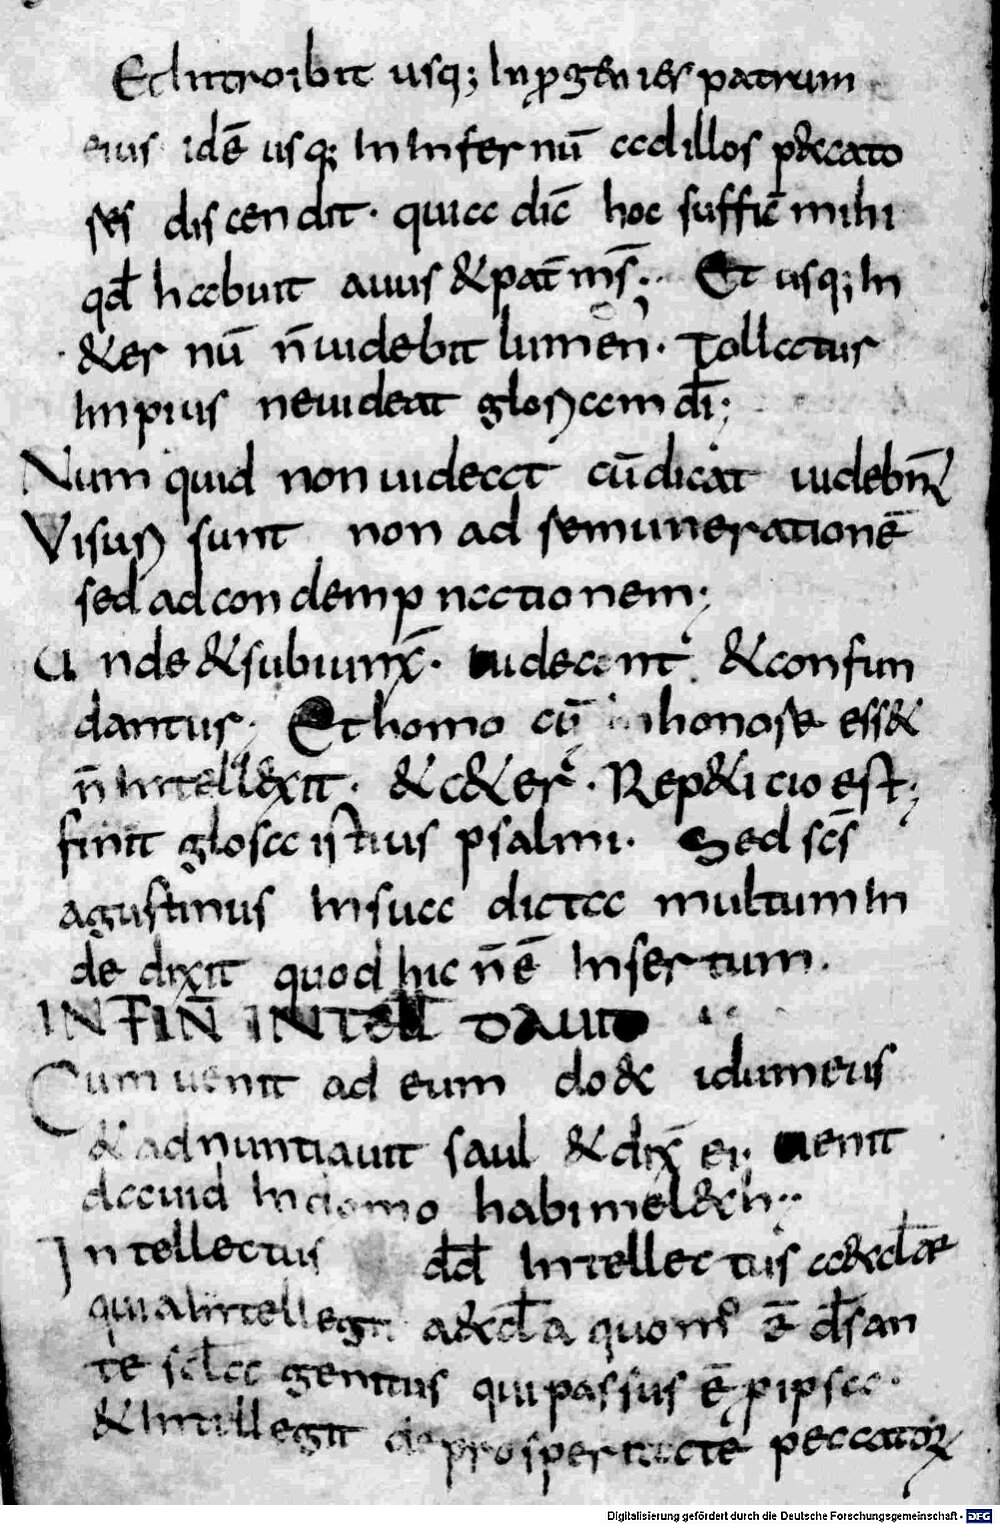 Et Introibit usq; In ꝓgenies patrum
eius idē usq; In Infernū ad illos p&cato
res discendit. quia dic̄ hoc suffic̄ mihi
qđ habuit auus & pat̄ m̄s. Et usq; In
&er nū n̄ uidebit lumen. Tollatur
Impius ne uideat gloriam dī;
Num quid non uideat cū dicat uidebn̄t
Visuri sunt non ad remunerationē
sed ad con demp nationem;
U nde & subiunx̄. uideant & confun
dantur; Et homo cū In honore ess&
n̄ Intell&xit. & c&er. Rep&icio est;
finit glosa istius psalmi. Sed sc̄s
agustinus In sua dicta multum In
de dixit quod hic n̄ ē Insertum.
IN FIN̄ INTELL̄ DAUID
Cum uenit ad eum do&c idumeus
& adnuntiauit saul & dix̄ ei; uenit
dauid In domo habimel&ch;
Intellectus dd̄ Intellectus a&cłæ
quia Intellegit a&cła quom̄ ē d̄s an
te scła genitus qui passus ē ꝓ ipsa.
& Intellegit de prosperitate peccatoꝝ
Digitalisierung gefördert durch die Deutsche Forschungsgemeinschaft - DFG